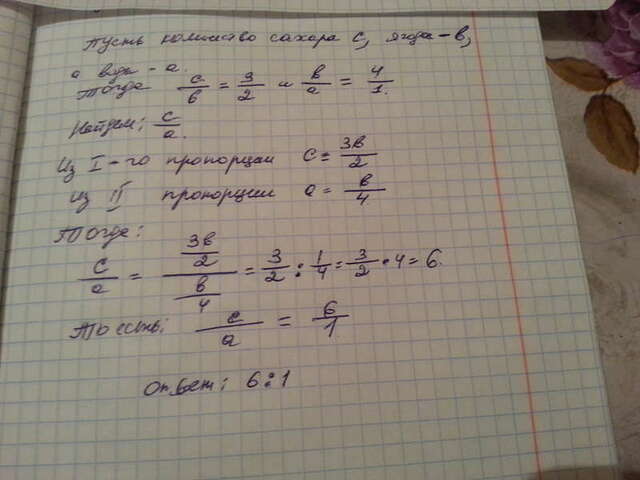 Пусть количество сахара с, ягода - в,
а вода - а.
Тогда с/в = 3/2 и в/а = 4/1.
Найдем: с/а.
Из I-го пропорции с = 3в/2
из II пропорции а = в/4
Тогда:
с/а = (3в/2)/(в/4) = 3/2 : 1/4 = 3/2 • 4 = 6.
То есть: с/а = 6/1
Ответ: 6:1